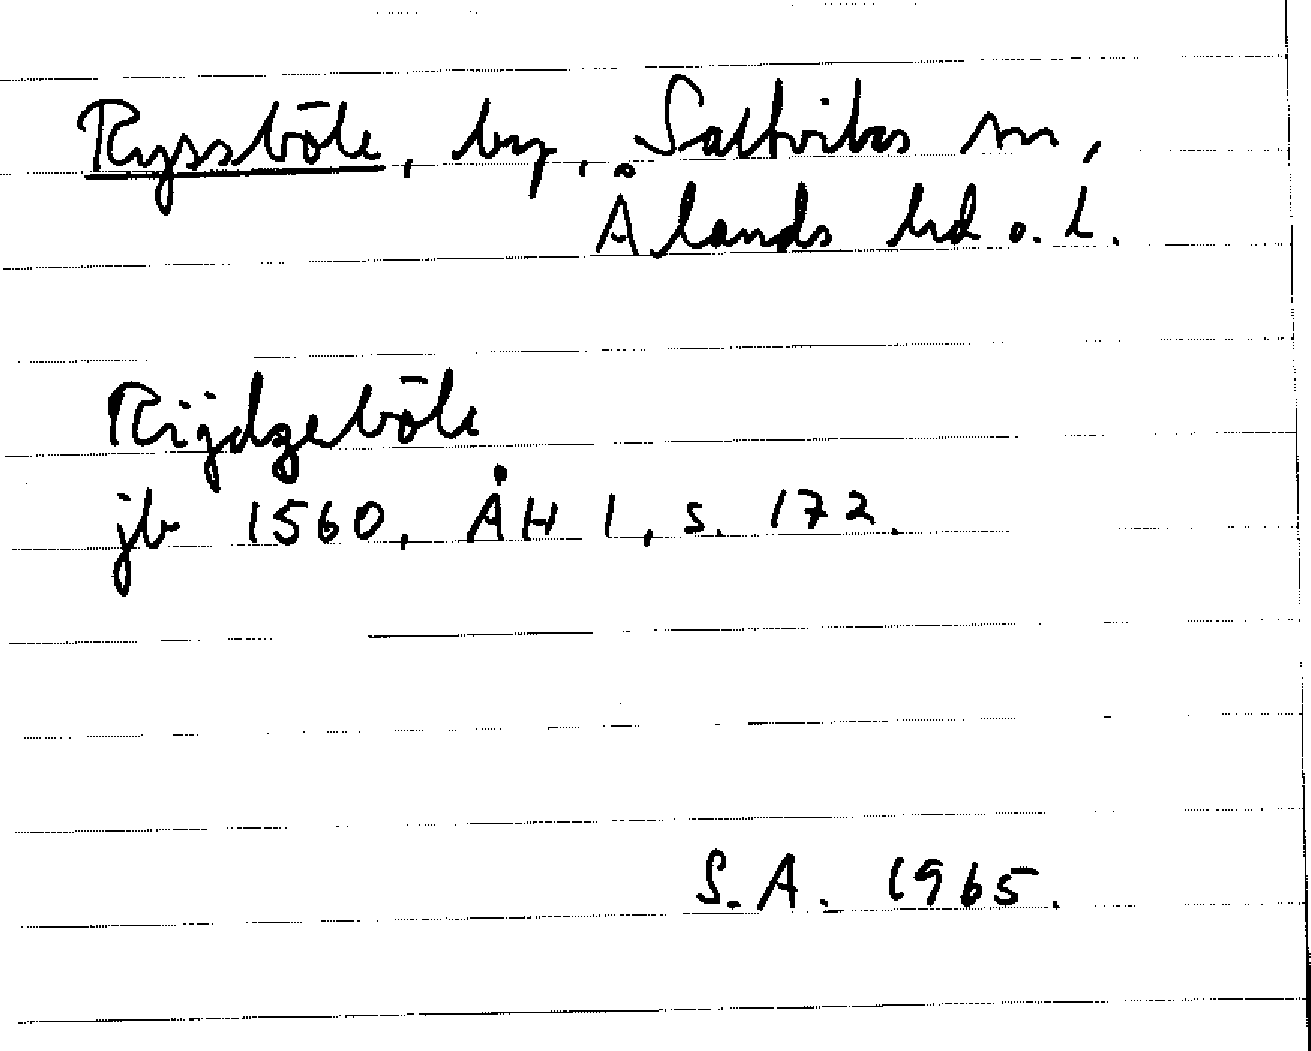 Ryssböle, by, Saltviks sn,
Ålands hd o. l.
Rijdzeböle
jb 1560, ÅH 1, s. 172.
S.A. 1965.